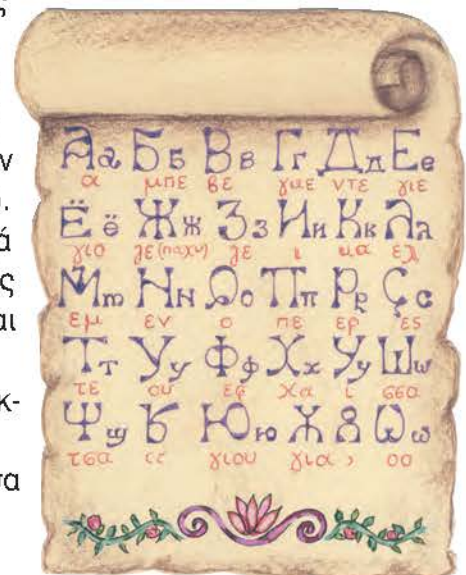 ς
ν
.
ά
ς
αι
κ-
σα
Аа Бб Вв Гг Дд Ее
α μπε βε γκε ντε γιε
Ёё Жж Зз Ии Кк Лл
γιο ζε (παχυ) ζε ι κα ελ
Мm Нн Ѻо Пп Рр Ҫс
εμ εν ο πε ερ ες
Тт Уу Фф Хх Уу Шш
τε ου εφ χα ι σσα
Ю ю
τσα γιου για οο